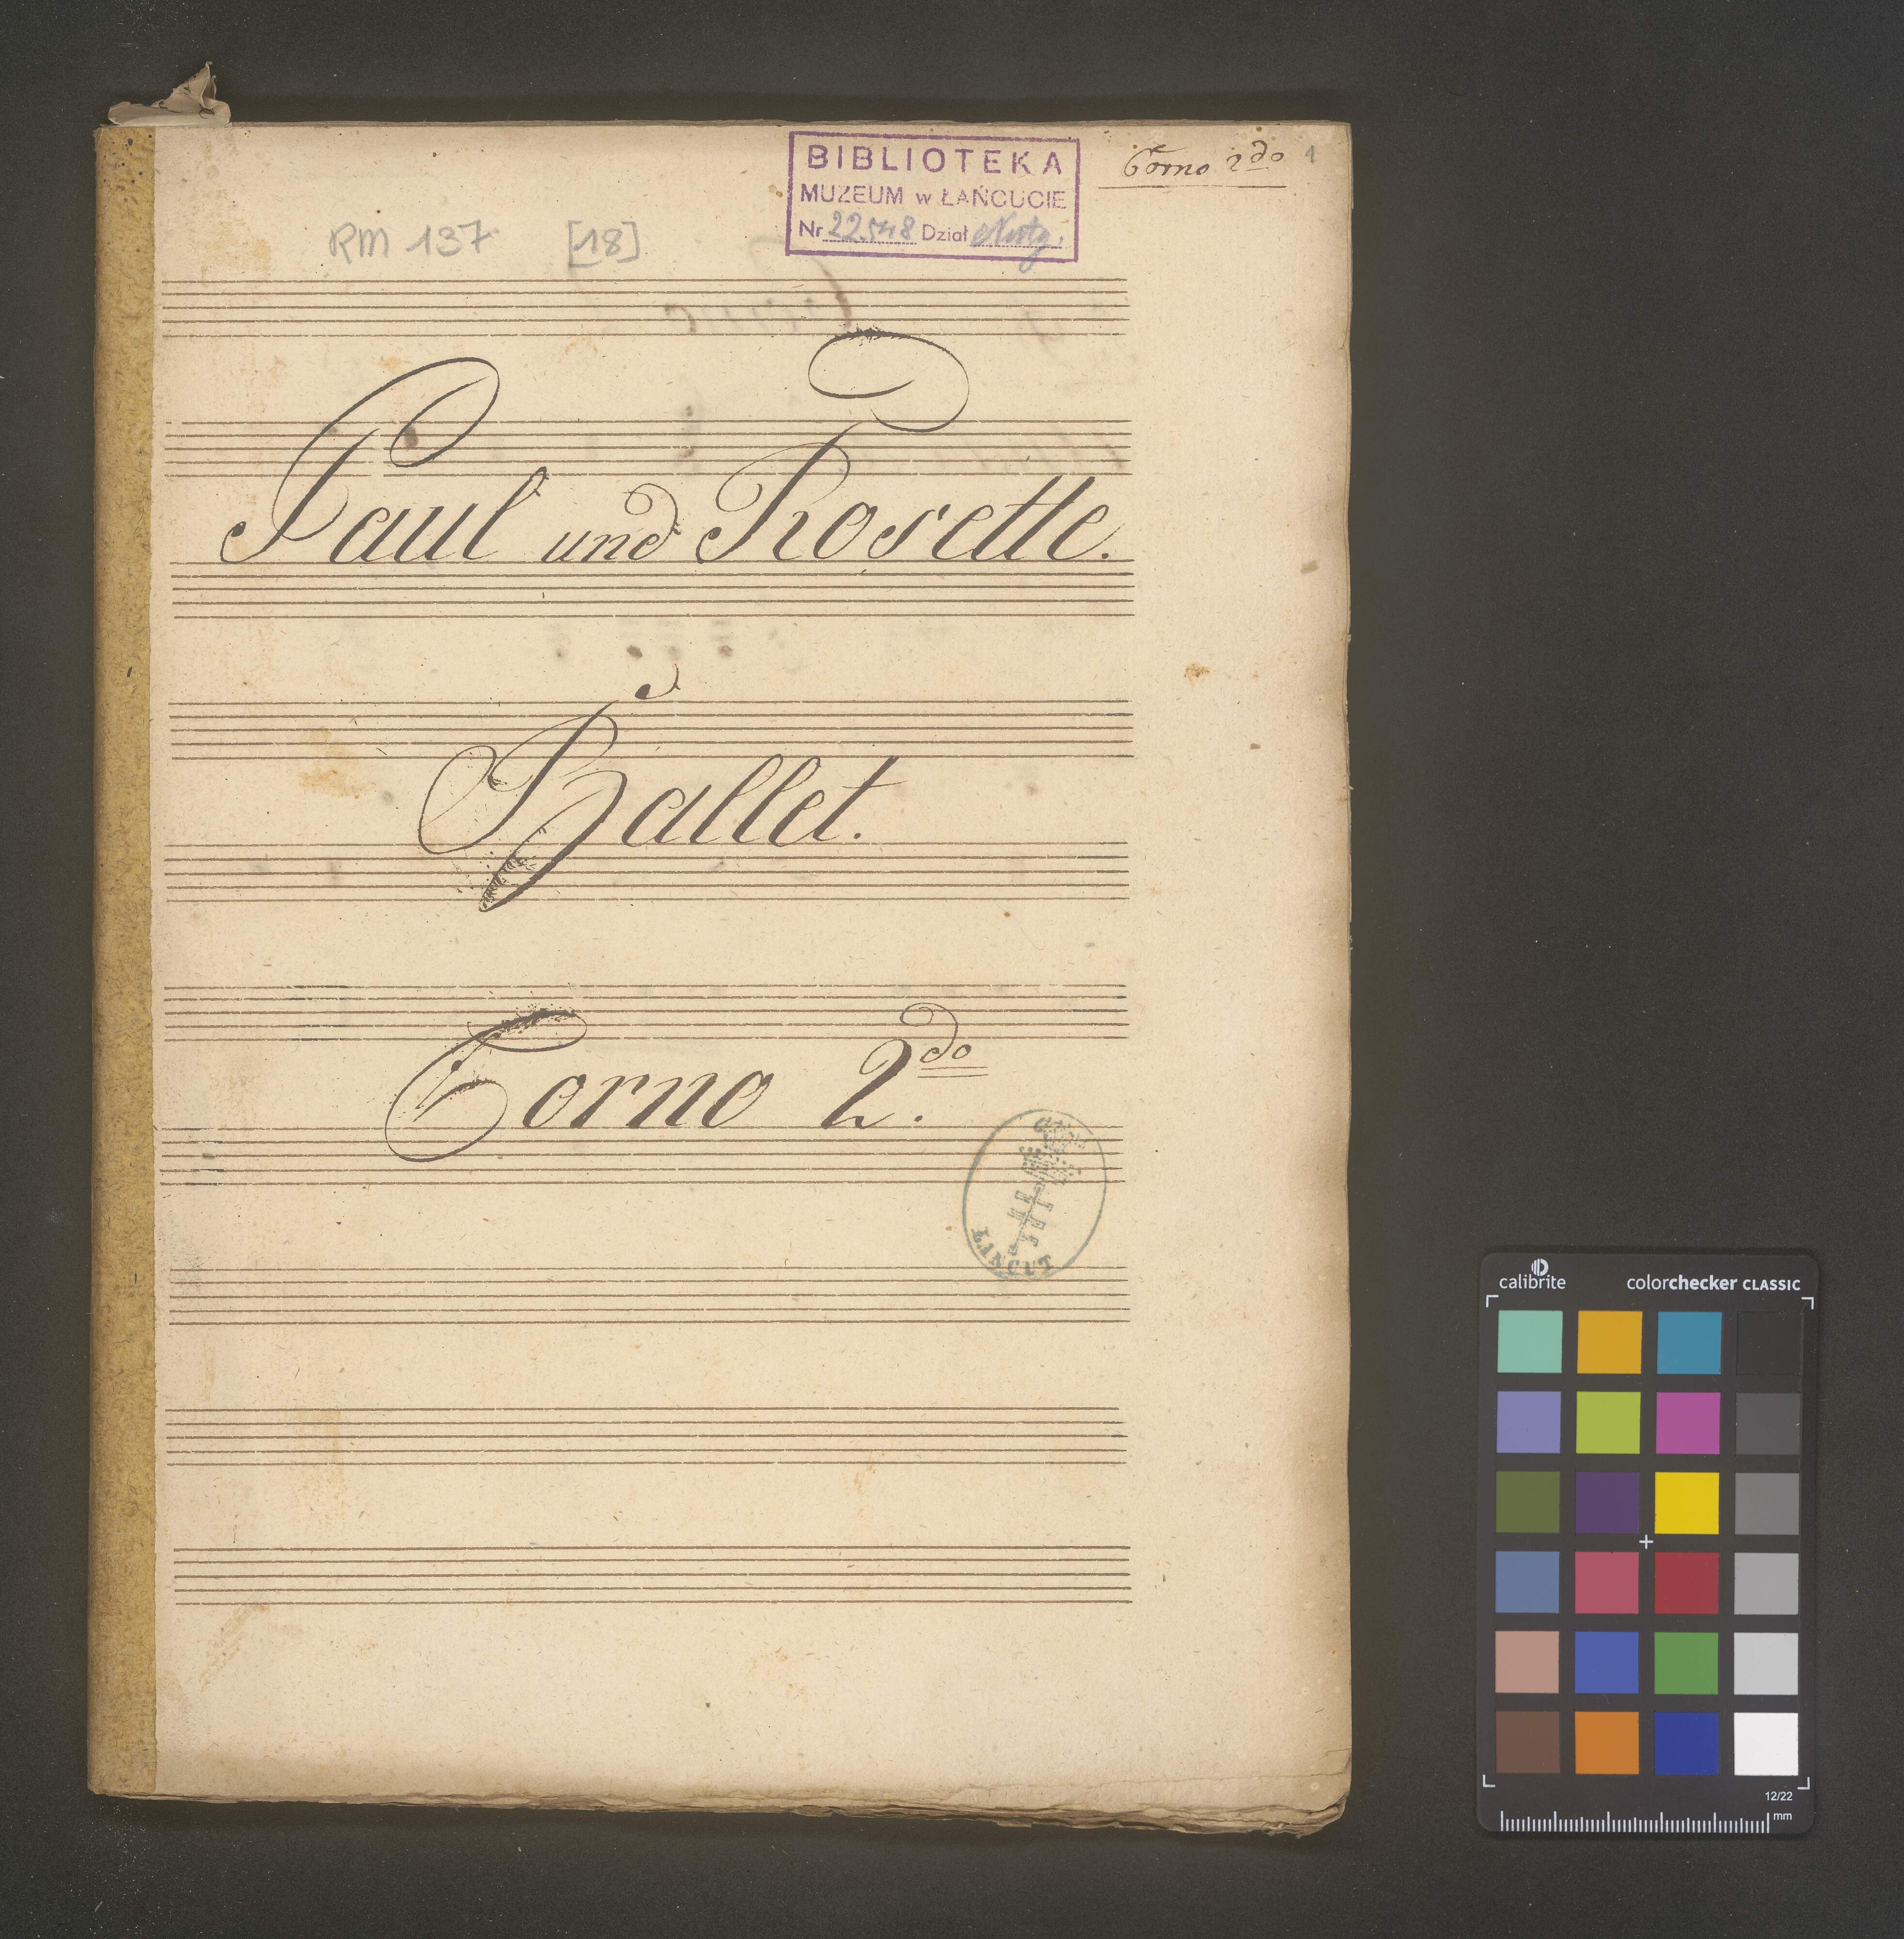 BIBLIOTEKA
MUZEUM w ŁAŃCUCIE
Nr 22548 Dział Nuty.
Corno 2do 1
RM 137 [18]
Paul und Rosette.
Ballet.
Corno 2.do
LANCUT
calibrite colorchecker CLASSIC
12/22
mm